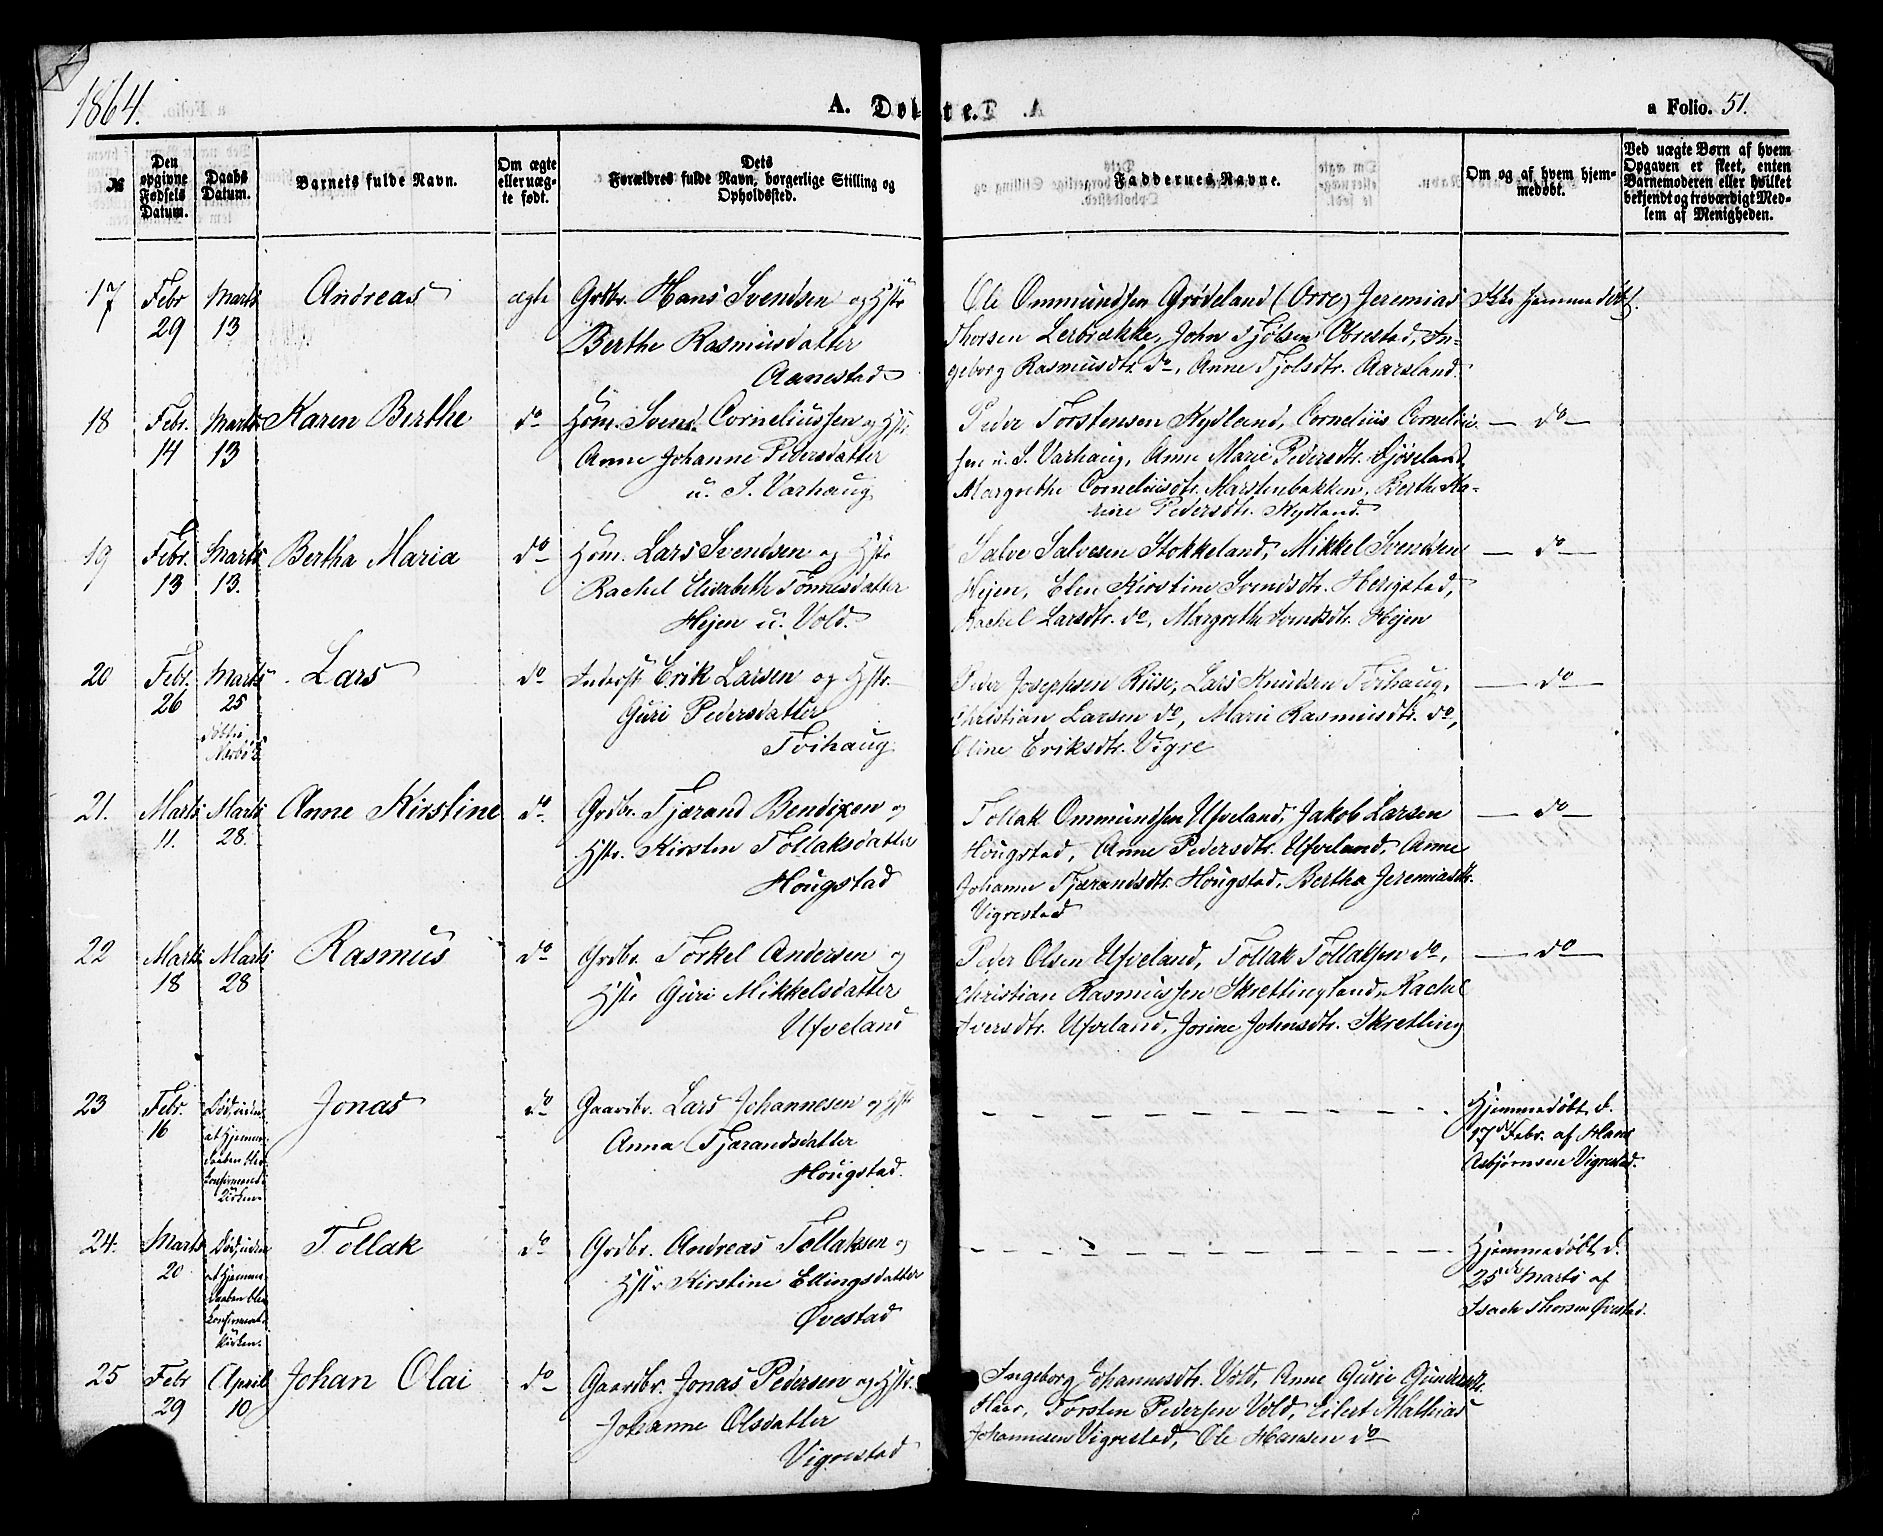 1864.
A. Døbte.
a Folio. 51.
№
Den opgivne Fødsels Datum.
Daabs Datum.
Barnets fulde Navn.
Om ægte eller uægte født.
Dets Forældres fulde Navn, borgerlige Stilling og Opholdssted.
Faddernes Navne.
Om og af hvem hjemmedøbt.
Ved uægte Børn af hvem Opgaven er skeet, enten Barnemoderen eller hvilket bekjendt og troværdigt Medlem af Menigheden.
17 Febr 29 Marts 13 Andreas ægte
Grdbr. Hans Svendsen og Hstr
Berthe Rasmusdatter
Aanestad
Ole Ommundsen Grødeland (Orre) Jeremias
Thorsen Lerbrække, John Tjølsen Obrestad, In-
geborg Rasmusdtr. do, Anne Tjolsdtr. Aarsland
Ikke hjemmedøbt.
18 Febr. 14 Marts 13 Karen Berthe do
Hom. Svend Corneliussen og Hstr.
Anne Johanne Pedersdatter
u. S. Varhaug
Peder Torstensen Nydland, Cornelius Corneliu-
sen u. S. Varhaug, Anne Marie Pedersdtr. Gjøveland,
Margrethe Corneliusdtr. Marstenbakken, Berthe Ka-
rine Pedersdtr. Nydland
— do —
19 Febr. 13 Marts 13. Bertha Maria do
Hom. Lars Svendsen og Hstr
Rachel Elisabeth Tønnesdatter
Højen u. Vold.
Salve Salvesen Stokkeland, Mikkel Svendsen
Højen, Elen Kirstine Svendsdtr. Herigstad,
Rachel Larsdtr. do, Margrethe Svendsdtr. Højen
— do —
20 Febr. 26 Marts 25 døbt i Nærbø K Lars do
Inderst Erik Larsen og Hstr.
Guri Pedersdatter
Torhaug
Peder Josephsen Riise, Lars Knudsen Torhaug,
Christian Larsen do, Marie Rasmusdtr. do,
Oline Eriksdtr. Vigre
— do —
21. Marts 11. Marts 28. Anne Kirstine do
Grdbr. Tjærand Bendixen og
Hstr. Kirsten Tollaksdatter
Hougstad
Tollak Ommundsen Ufveland, Jakob Larsen
Hougstad, Anne Pedersdtr. Ufveland, Anne
Johanne Tjærandsdtr. Hougstad, Bertha Jeremiasdtr.
Vigrestad
— do —
22 Marts 18 Marts 28 Rasmus do
Grdbr. Torkel Andersen og
Hstr Guri Mikkelsdatter
Ufveland
Peder Olsen Ufveland, Tollak Tollaksen do,
Christian Rasmussen Skrettingland, Rachel
Iversdtr. Ufveland, Josine Johnsdtr. Skretting
— do —
23 Febr. 16 Død, uden at Hjemmedaaben blev konfirmeret i Kirken. Jonas do
Gaardbr. Lars Johannesen og Hstr
Anna Tjærandsdatter
Hougstad.
Hjemmedøbt d.
17d Febr. af Hans
Asbjørnsen Vigrestad.
24. Marts 20 Død, uden at Hjemmedaaben blev konfirmeret i Kirken. Tollak do
Grdbr. Andreas Tollaksen og
Hstr Kirstine Ellingsdatter
Øvestad
Hjemmedøbt d.
25de Marts af
Isach Thorsen Øvestad.
25 Febr 29 April 10 Johan Olai do
Gaardbr. Jonas Pedersen og Hstr.
Johanne Olsdatter
Vigrestad
Ingeborg Johannesdtr. Vold, Anne Gurie Gundersdtr.
Haar, Torsten Pedersen Vold, Eilert Mathias
Johannesen Vigrestad, Ole Hansen do